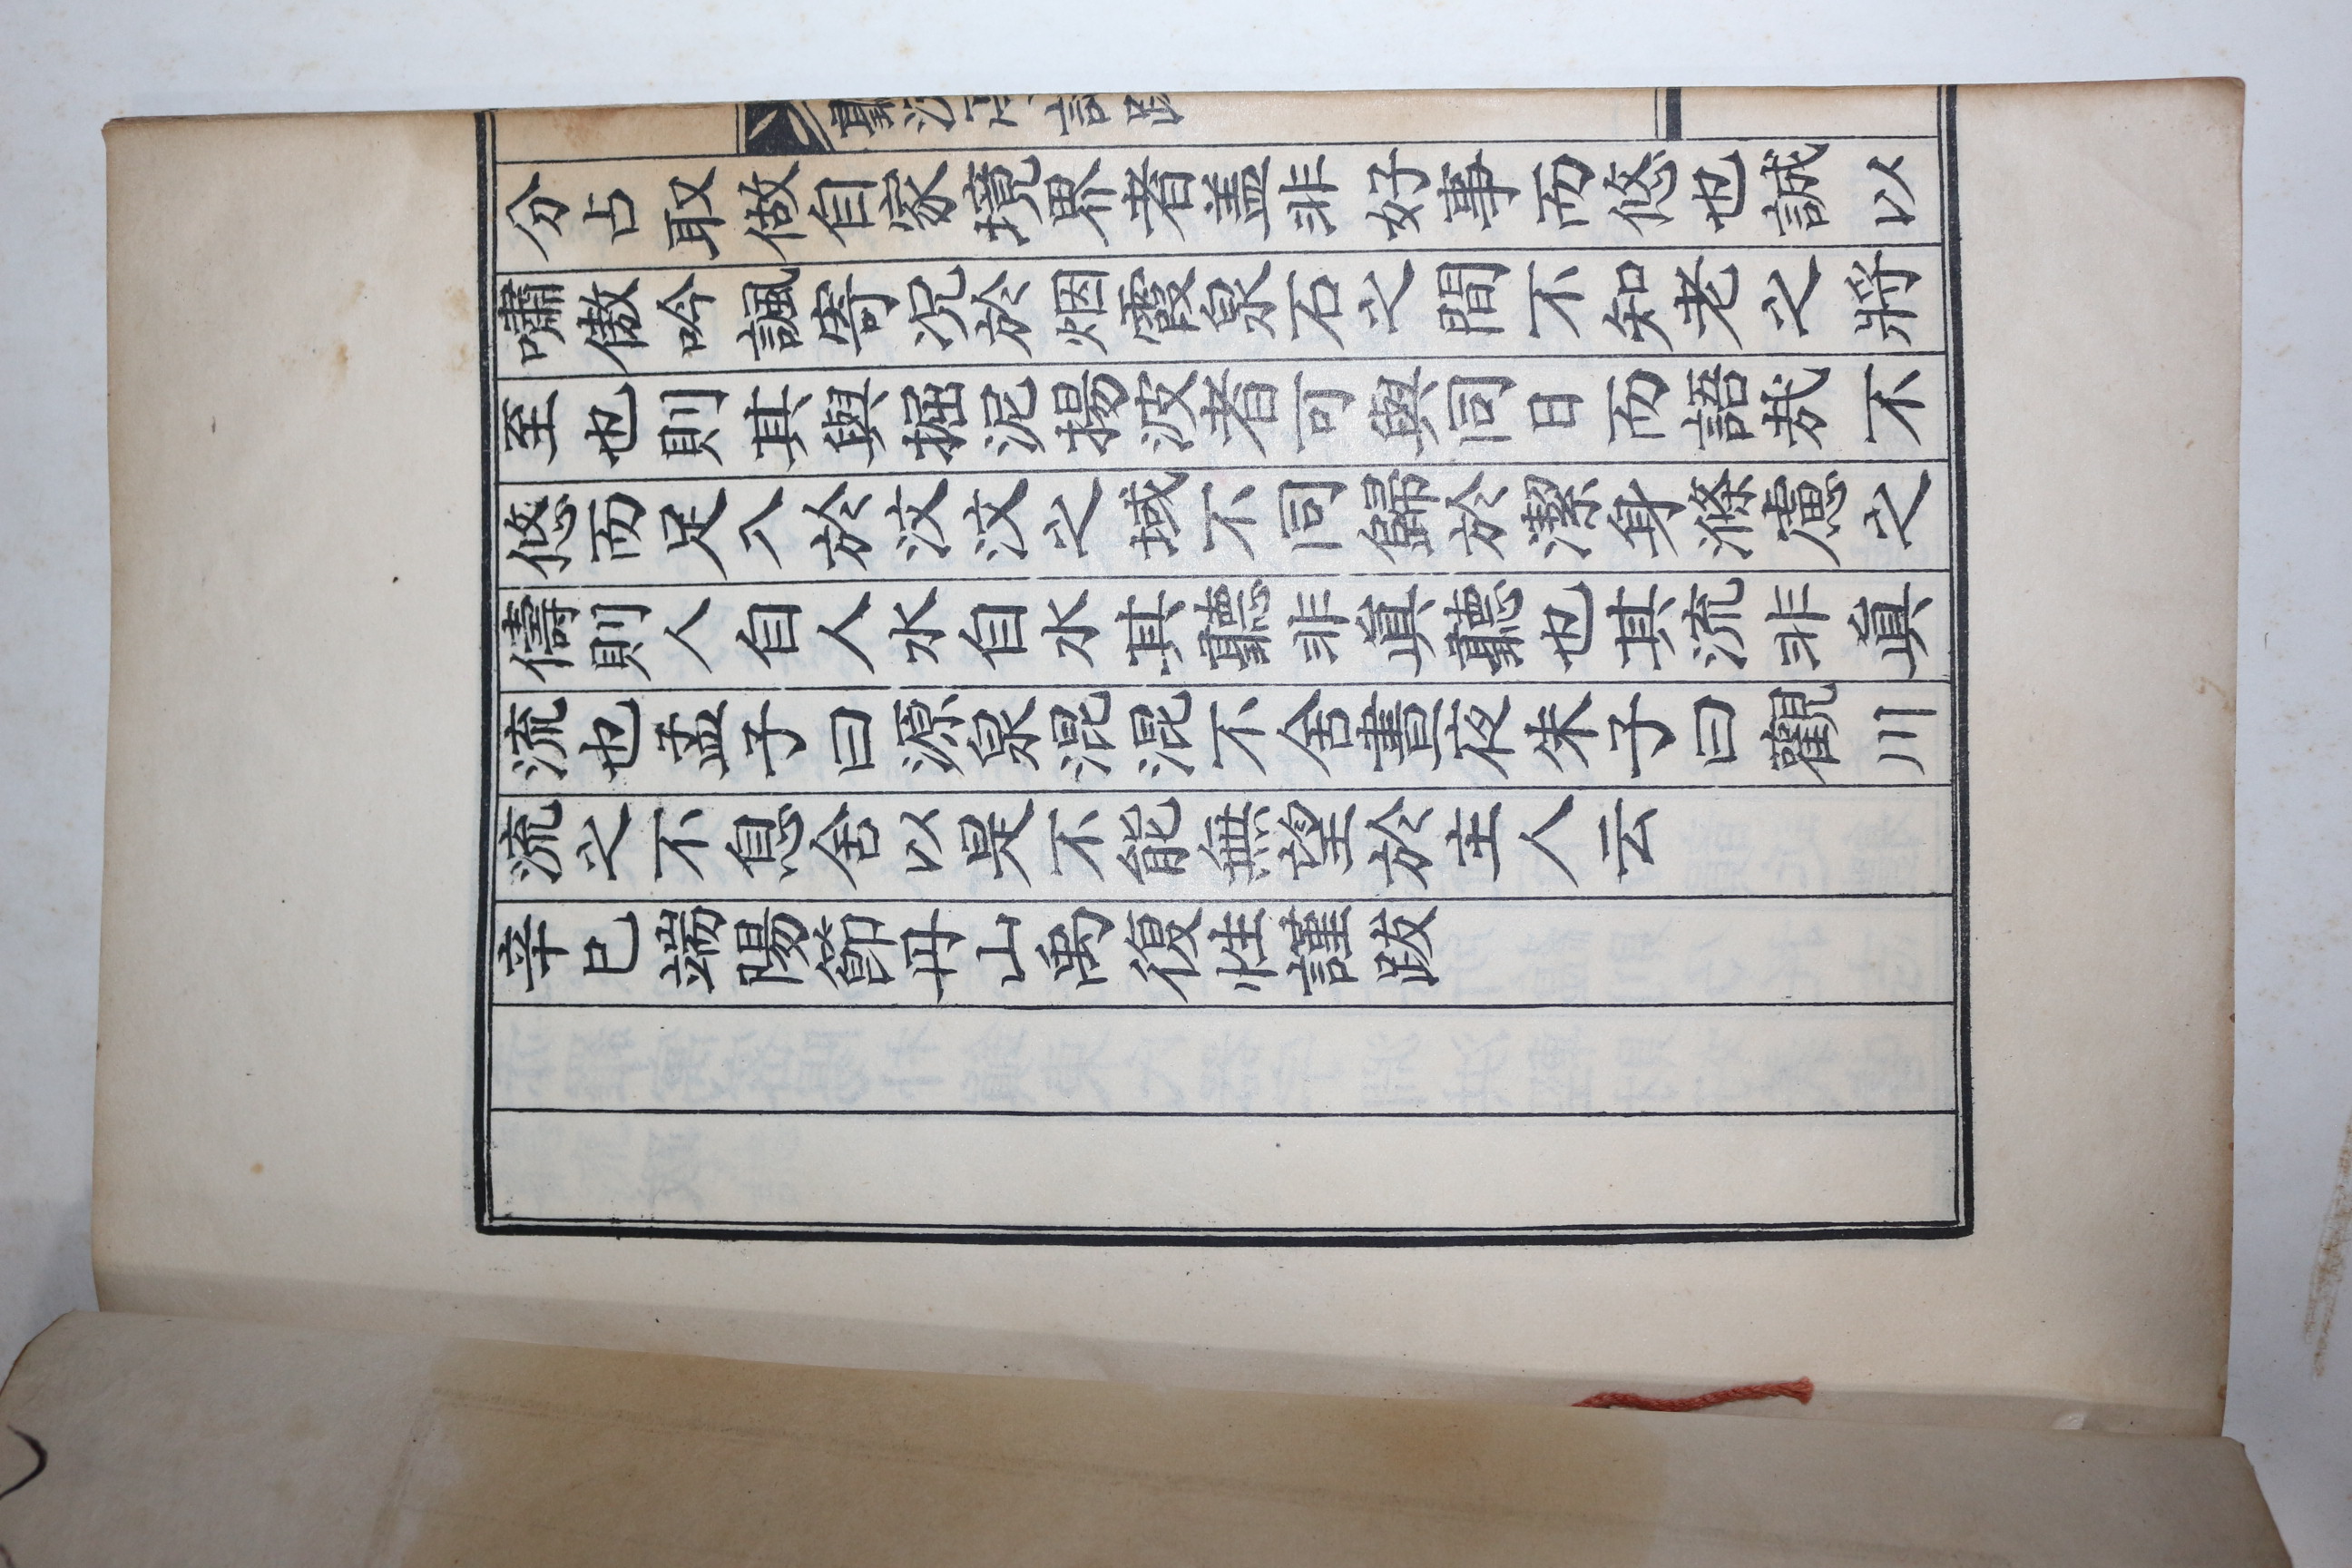 聽流亭記
分占取做自家境界者盖非好事而悠也誠以
嘯傲吟諷寄況於烟霞泉石之間不知老之將
至也則其與掘泥揚波者可與同日而語哉不
悠而足入於汶汶之域不同歸於潔身滌慮之
儔則人自人水自水其聽非眞聽也其流非眞
流也孟子曰源泉混混不舍晝夜朱子曰觀川
流之不息舍以是不能無望於主人云
辛巳端陽節丹山禹復性謹跋